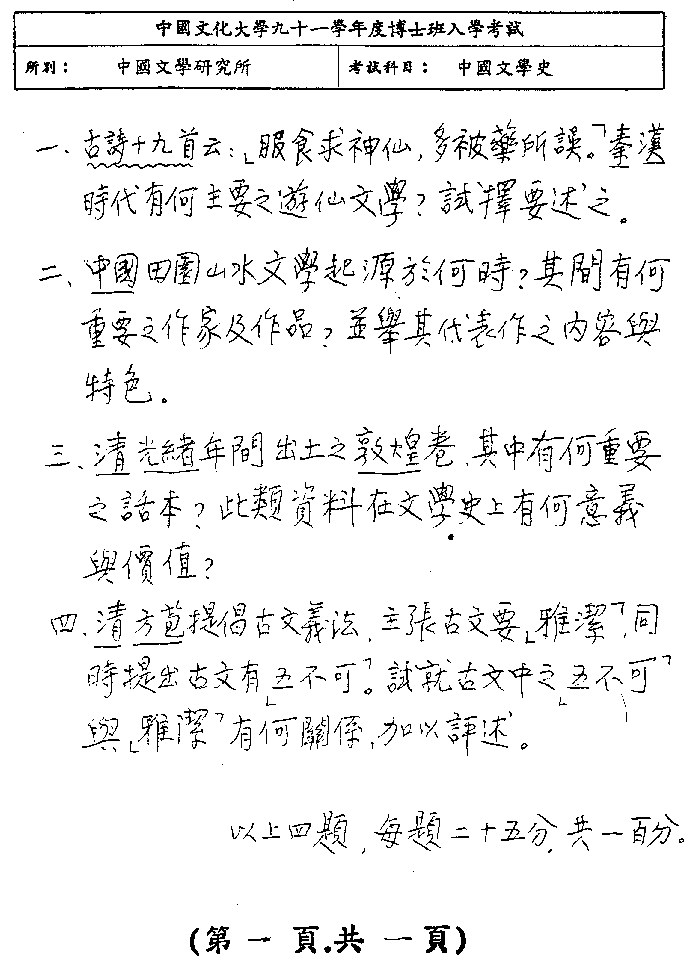 中國文化大學九十一學年度博士班入學考試
所別： 中國文學研究所 考試科目： 中國文學史
一、古詩十九首云：「服食求神仙，多被藥所誤。」秦漢
時代有何主要之遊仙文學？試擇要述之。
二、中國田園山水文學起源於何時？其間有何
重要之作家及作品？並舉其代表作之內容與
特色。
三、清光緒年間出土之敦煌卷，其中有何重要
之話本？此類資料在文學史上有何意義
與價值？
四、清方苞提倡古文義法，主張古文要「雅潔」，同
時提出古文有「五不可」。試就古文中之「五不可」
與「雅潔」有何關係，加以評述。
以上四題，每題二十五分，共一百分。
(第一頁.共一頁)